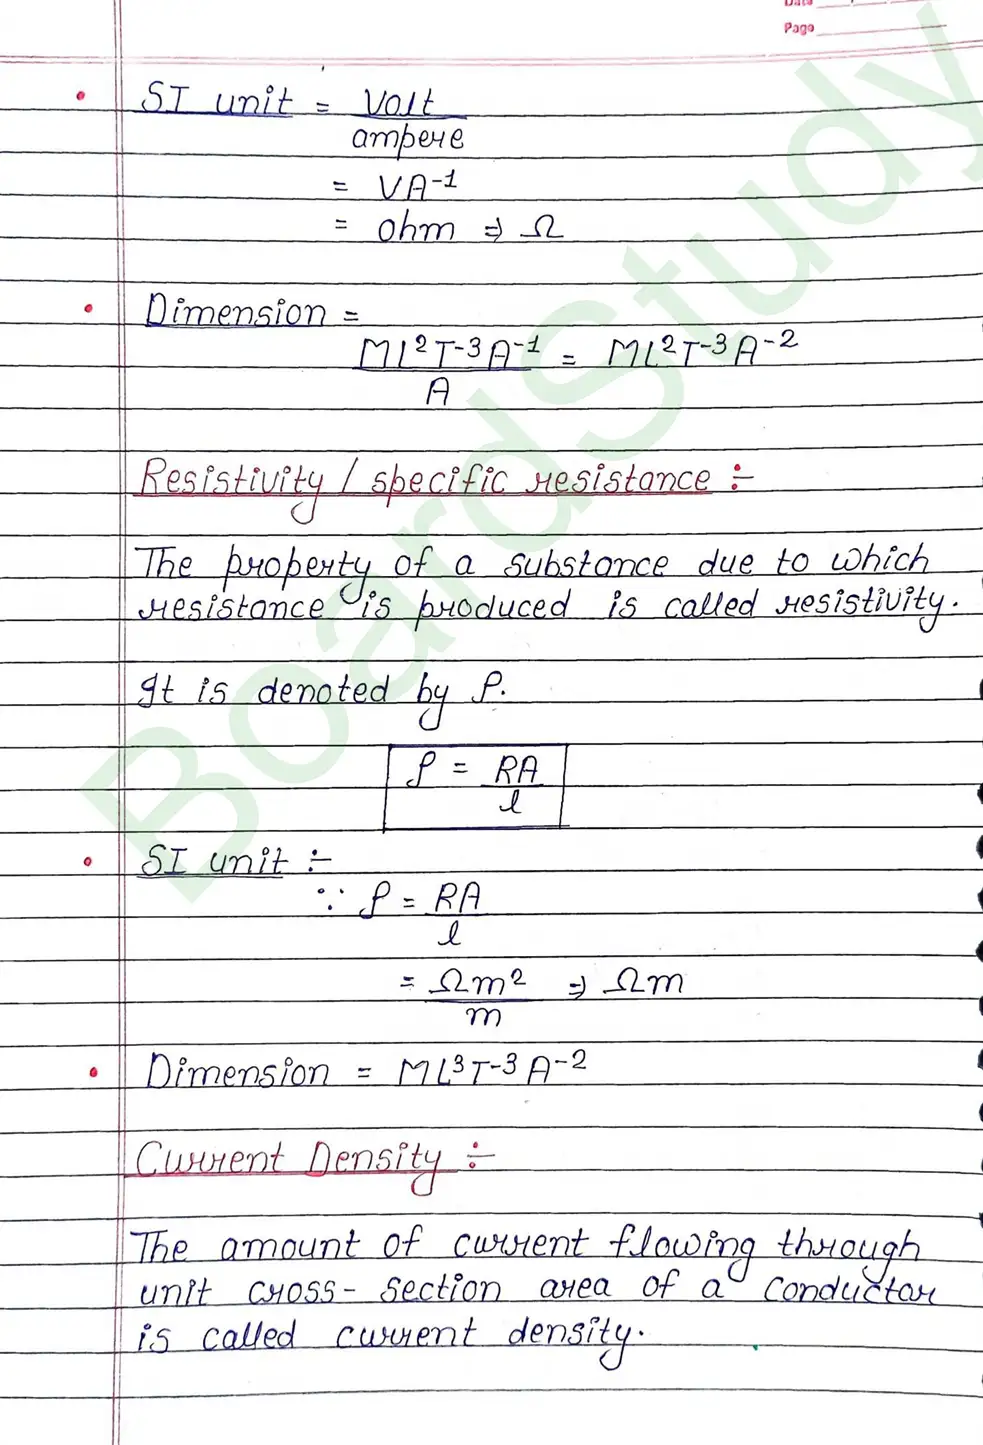 Date
Page
SI unit = Volt
ampere
= VA⁻¹
= ohm ⇒ Ω
Dimension =
ML²T⁻³A⁻¹ = ML²T⁻³A⁻²
A
Resistivity / specific resistance :-
The property of a substance due to which
resistance is produced is called resistivity.
It is denoted by ρ.
ρ = RA
l
SI unit :-
∵ ρ = RA
l
= Ωm² ⇒ Ωm
m
Dimension = ML³T⁻³A⁻²
Current Density :-
The amount of current flowing through
unit cross-section area of a conductor
is called current density.
BoardStudy